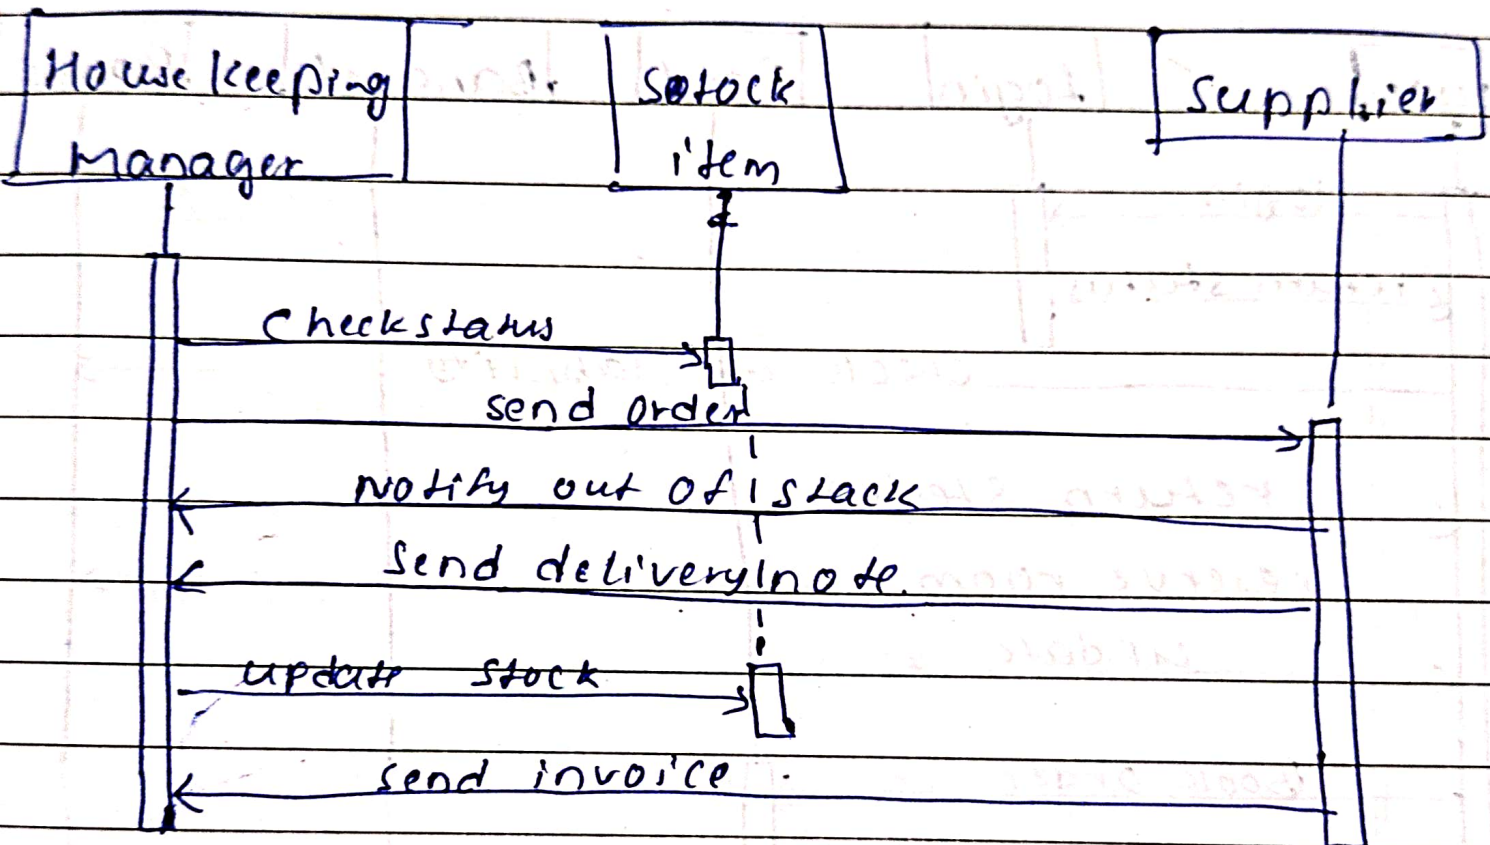 House keeping
Manager
Stock
item
Supplier
Check status
send order
Notify out of stack
Send delivery note.
update stock
send invoice